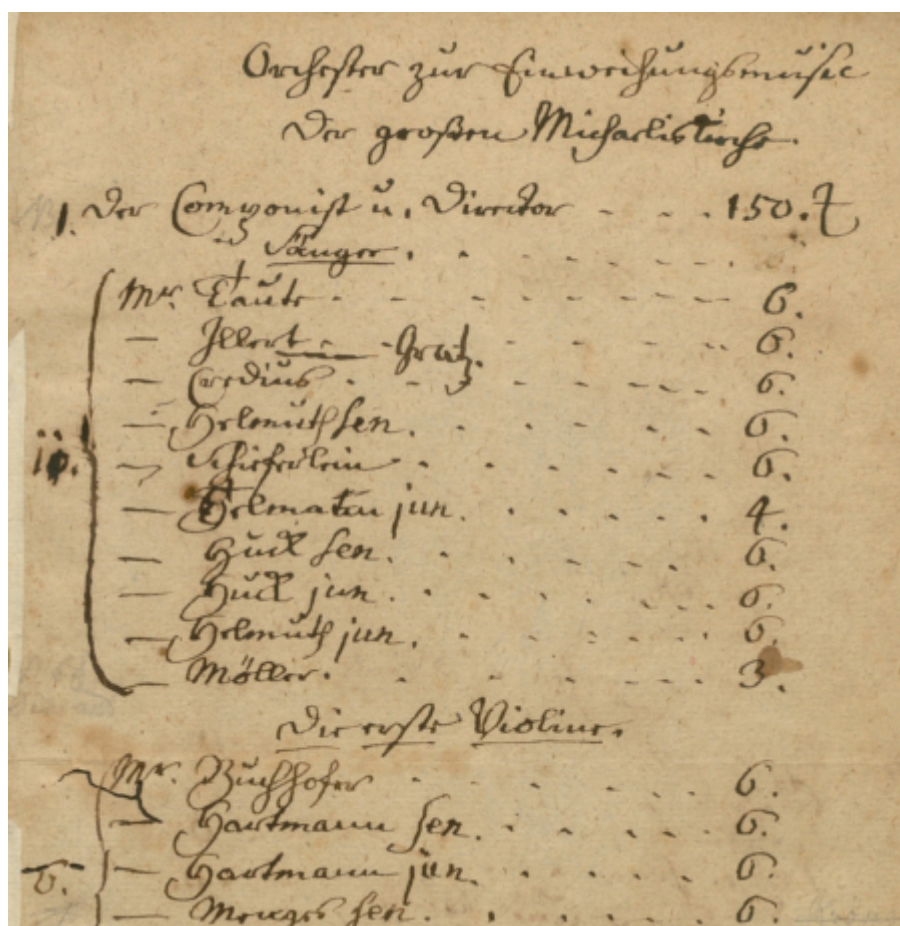 Orchester zur Einweihungsmusic
der großen Michaeliskirche.
1. Der Componist u. Director - - - 150.
Sänger.
Mr. Taute - - - 6.
— Illert - Gratz. - - 6.
— Credius - - - 6.
— Helmuth sen. - - - 6.
10. — Schieferlein - - - 6.
— jun. - - - 4.
— Huck sen. - - - 6.
— Huck jun. - - - 6.
— Helmuth jun. - - - 6.
— Möller. - - - 3.
Die erste Violine.
Mr. Buchhofer - - - 6.
— Hartmann sen. - - - 6.
— Hartmann jun. - - - 6.
— Menges sen. - - - 6.